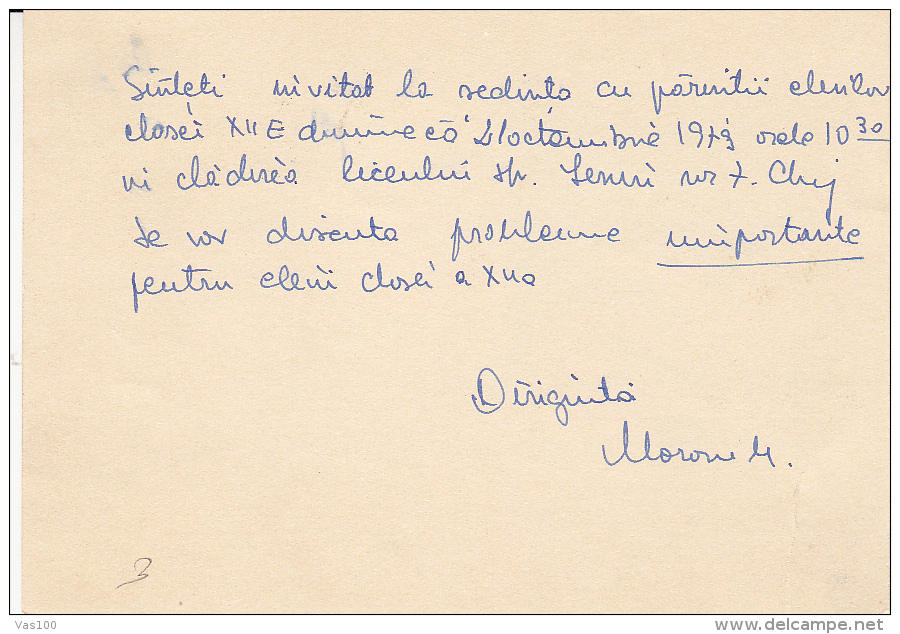 Sînteți invitat la sedința cu părintii elevilor
clasei XII E duminecă 21 octombrie 1973 orele 10 30
in clădirea liceului str. nr 7. Cluj
Se vor discuta probleme importante
pentru elevii clasei a XII a
Diriginta
M.
3
Vas100
www.delcampe.net